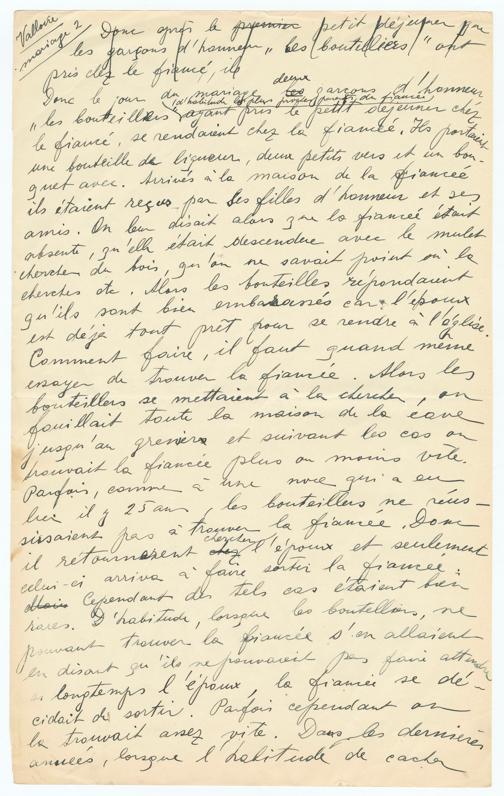 Valloire
mariage 2
Donc après le premier petit déjeuner que
les garçons d'honneur "les bouteillers" ont
pris chez le fiancé, ils
Donc le jour du mariage les deux garçons d'honneur
(d'habitude les plus proches parents du fiancé)
"les bouteillers ayant pris le petit déjeuner chez
le fiancé, se rendaient chez la fiancée. Ils portaient
une bouteille de liqueur, deux petits vers et un bou-
quet avec. Arrivés à la maison de la fiancée
ils étaient reçus par les filles d'honneur et ses
amis. On leur disait alors que la fiancée était
absente, qu'elle était descendue avec le mulet
chercher du bois, qu'on ne savait point où la
chercher etc. Alors les bouteillers répondaient
qu'ils sont bien embarassés car l'époux
est déjà tout prêt pour se rendre à l'église.
Comment faire, il faut quand même
essayer de trouver la fiancée. Alors les
bouteillers se mettaient à la chercher, on
fouillait toute la maison de la cave
jusqu'au greniers et suivant les cas on
trouvait la fiancée plus ou moins vite.
Parfois, comme à une noce qui a eu
lieu il y 25 ans, les bouteillers ne réus-
sissaient pas à trouver la fiancée. Donc
il retournèrent chez chercher l'époux et seulement
celui-ci arriva à faire sortir la fiancée.
Cependant des tels cas étaient bien
rares. D'habitude, lorsque les boutelliers, ne
pouvant trouver la fiancée s'en allaient
en disant qu'ils ne pouvaient pas faire attendre
si longtemps l'époux, la fiancée se dé-
cidait de sortir. Parfois cependant on
la trouvait assez vite. Dans les dernières
années, lorsque l'habitude de cacher